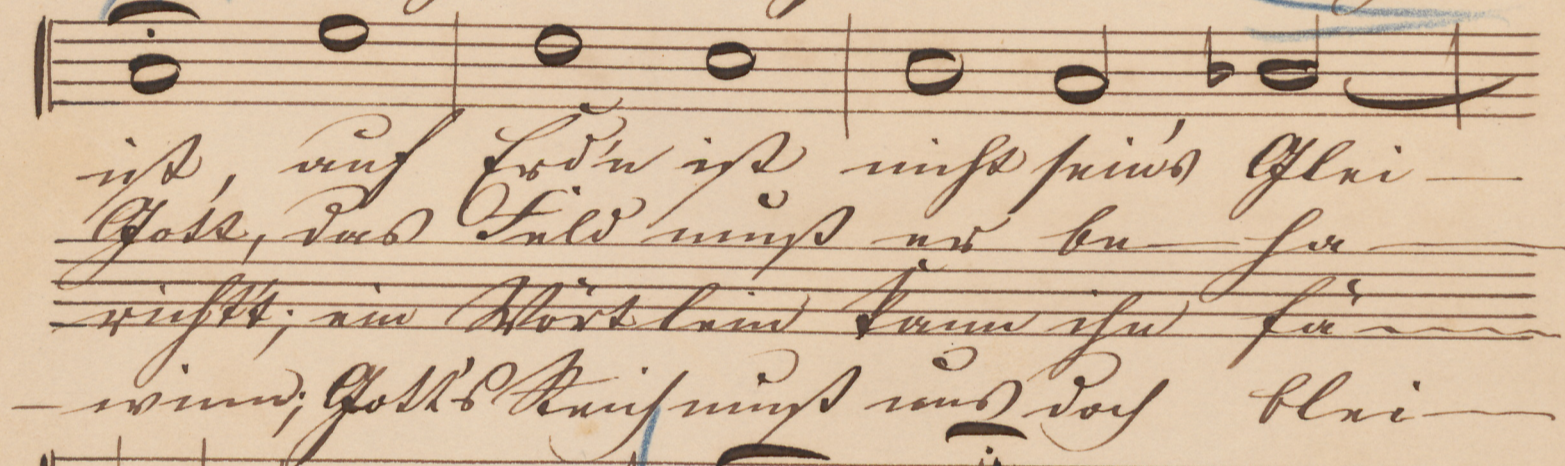 ist, auf Erd'n ist nicht sein's Glei—
Gott, das Feld muß er be— ha—
richt't; ein Wörtlein kann ihn fä—
—winn; Gott's Reich muß uns doch blei—